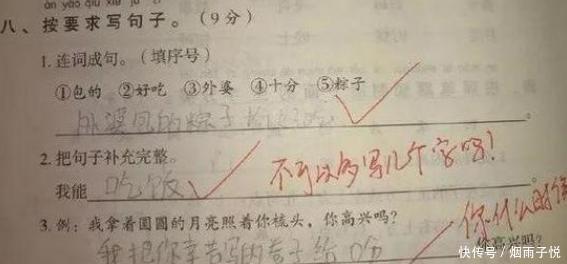 àn yāo qiú xiě jù zi
八、按要求写句子。（9分）
1. 连词成句。（填序号）
①包的 ②好吃 ③外婆 ④十分 ⑤粽子
外婆包的粽子十分好吃
2. 把句子补充完整。
我能 吃饭
不可以多写几个字吗！
3. 例：我拿着圆圆的月亮照着你梳头，你高兴吗？
你什么时候
我把你辛苦写的卷子给 0分 你高兴吗？
快传号/烟雨子悦